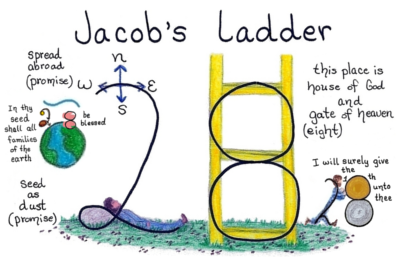 Jacob's Ladder
spread
abroad
(promise)
n
W
E
S
In thy
seed
shall all
families
of the
earth
be
blessed
seed
as
dust
(promise)
this place is
house of God
and
gate of heaven
(eight)
I will surely give
the
th
unto
thee